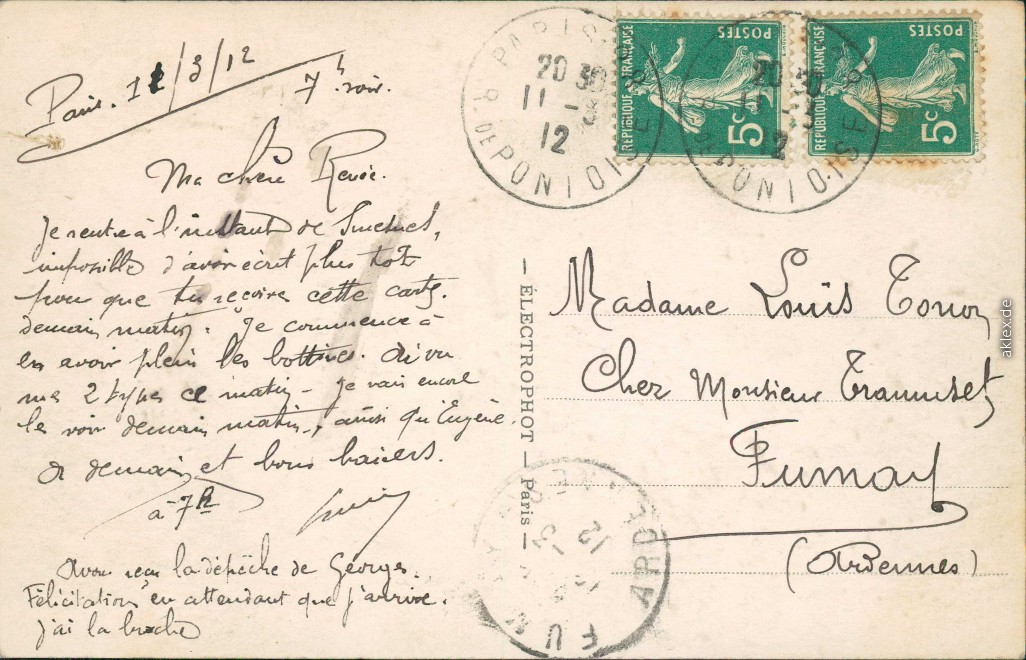 Paris. 11/3/12
7h soir.
Ma chère Renée.
Je rentre à l'instant de Suresnes,
impossible d'avoir écrit plus tôt
pour que tu reçoives cette carte
demain matin. Je commence à
en avoir plein les bottines. Ai vu
mes 2 types ce matin - Je vais encore
les voir demain matin, ainsi qu'Eugène.
A demain et bons baisers.
à 7h
Avons reçu la dépêche de Georges.
Félicitations en attendant que j'arrive.
J'ai la broche
ÉLECTROPHOT - Paris
PARIS
20 30
11 - 3
12
R. DE PONTOISE
RÉPUBLIQUE FRANÇAISE
POSTES
5c
RÉPUBLIQUE FRANÇAISE
POSTES
5c
Madame Louis
Chez Monsieur
Fumay
(Ardennes)
FUMAY
ARDENNES
12 - 3
12
aklex.de